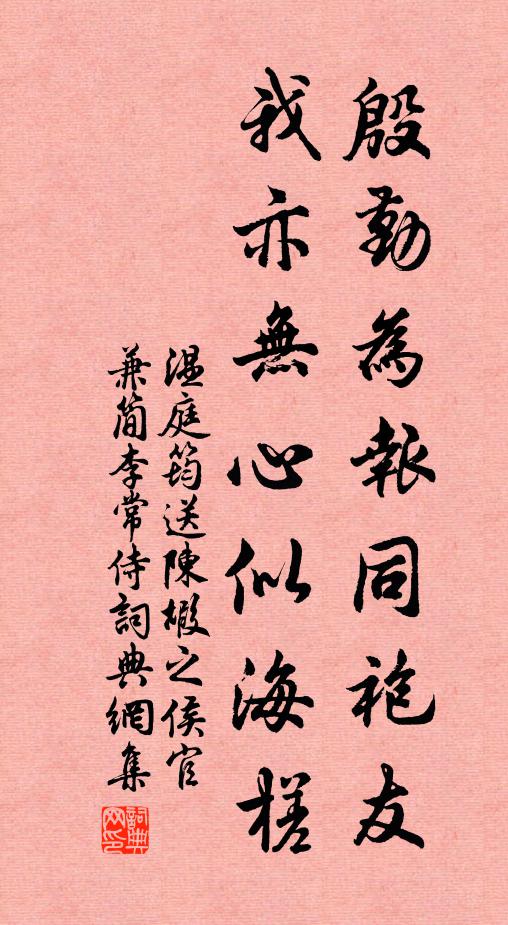 殷勤為報同袍友
我亦無心似海槎
温庭筠送陳嘏之侯官
兼簡李常侍詞典網集
詞典
网印